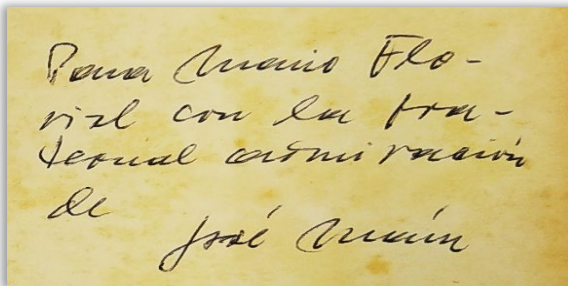 Para Mario Flo-
rial con la fra-
ternal admiración
de
José Marín